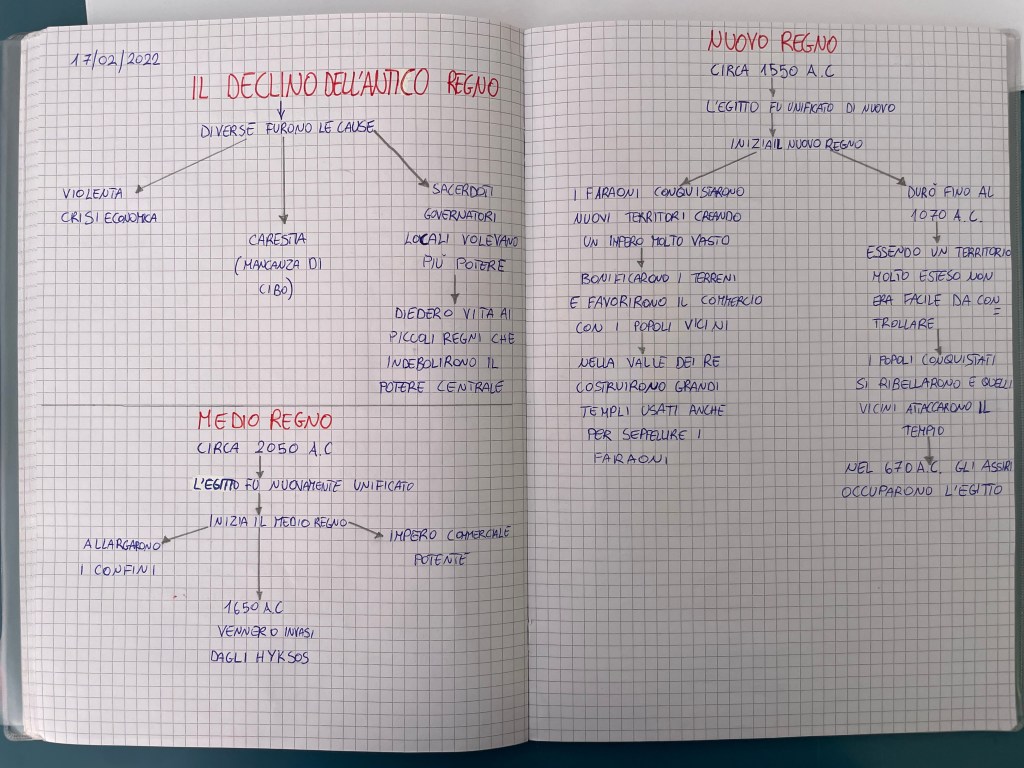 17/02/2022
IL DECLINO DELL'ANTICO REGNO
DIVERSE FURONO LE CAUSE
VIOLENTA
CRISI ECONOMICA
CARESTIA
(MANCANZA DI
CIBO)
SACERDOTI
GOVERNATORI
LOCALI VOLEVANO
PIÙ POTERE
DIEDERO VITA AI
PICCOLI REGNI CHE
INDEBOLIRONO IL
POTERE CENTRALE
MEDIO REGNO
CIRCA 2050 A.C
L'EGITTO FU NUOVAMENTE UNIFICATO
INIZIA IL MEDIO REGNO
ALLARGARONO
I CONFINI
1650 A.C
VENNERO INVASI
DAGLI HYKSOS
IMPERO COMMERCIALE
POTENTE
NUOVO REGNO
CIRCA 1550 A.C
L'EGITTO FU UNIFICATO DI NUOVO
INIZIA IL NUOVO REGNO
I FARAONI CONQUISTARONO
NUOVI TERRITORI CREANDO
UN IMPERO MOLTO VASTO
BONIFICARONO I TERRENI
E FAVORIRONO IL COMMERCIO
CON I POPOLI VICINI
NELLA VALLE DEI RE
COSTRUIRONO GRANDI
TEMPLI USATI ANCHE
PER SEPPELURE I
FARAONI
DURÒ FINO AL
1070 A.C.
ESSENDO UN TERRITORIO
MOLTO ESTESO NON
ERA FACILE DA CON=
TROLLARE
I POPOLI CONQUISTATI
SI RIBELLARONO E QUELLI
VICINI ATTACCARONO IL
TEMPIO
NEL 670 A.C. GLI ASSIRI
OCCUPARONO L'EGITTO